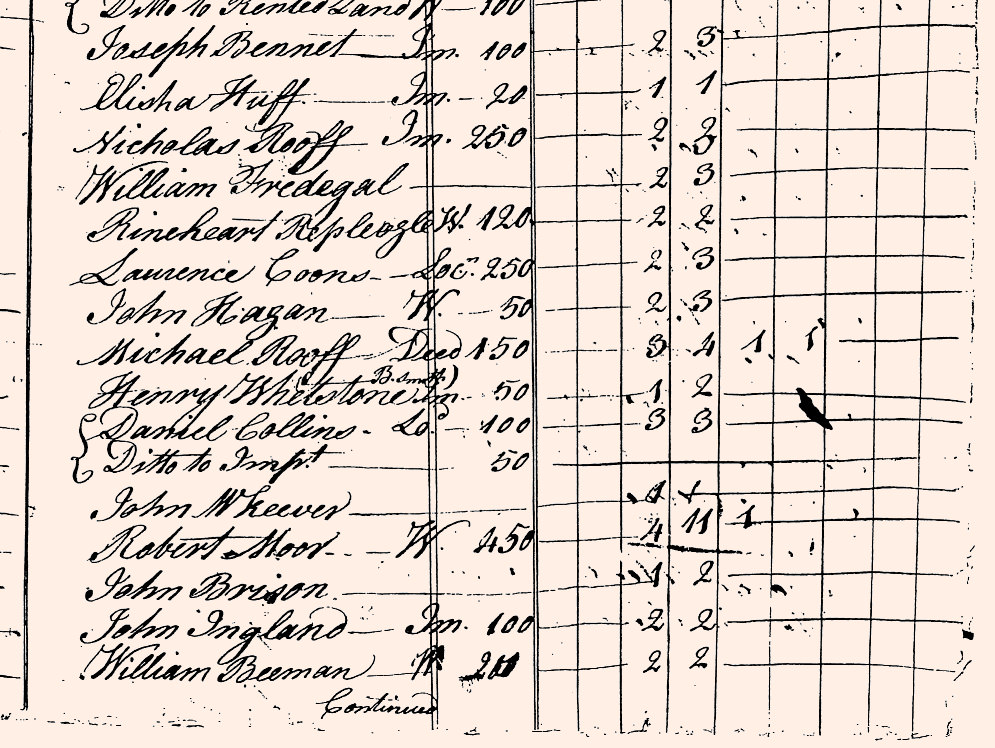 Ditto to Rented Land W 100
Joseph Bennet Im. 100 2 3
Elisha Huff Im. 20 1 1
Nicholas Rooff Im. 250 2 2
William Fredegal 2 3
Rineheart Repleogle W. 120 2 2
Laurence Coons Locn. 250 2 3
John Hagan W. 50 2 3
Michael Rooff Deed 150 3 4 1 1
Henry Whetstone (B.smith) Im. 50 1 2
Daniel Collins Lo. 100 3 3
Ditto to Impt 50
John McKeever 1 1
Robert Moor W. 450 4 11 1
John Brison 1 2
John Ingland Im. 100 2 2
William Beeman W. 2 2
Continued